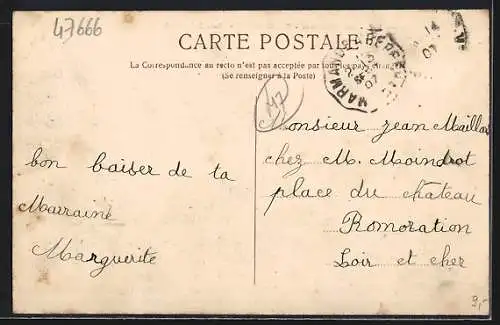 47666
CARTE POSTALE
La Correspondance au recto n'est pas acceptée par tous les pays étrangers
(Se renseigner à la Poste)
MARMANDE
07
14
07
Monsieur jean Maillar
chez M. Moindrot
place du château
Romoration
Loir et cher
bon baiser de ta
Marraine
Marguerite
3,-